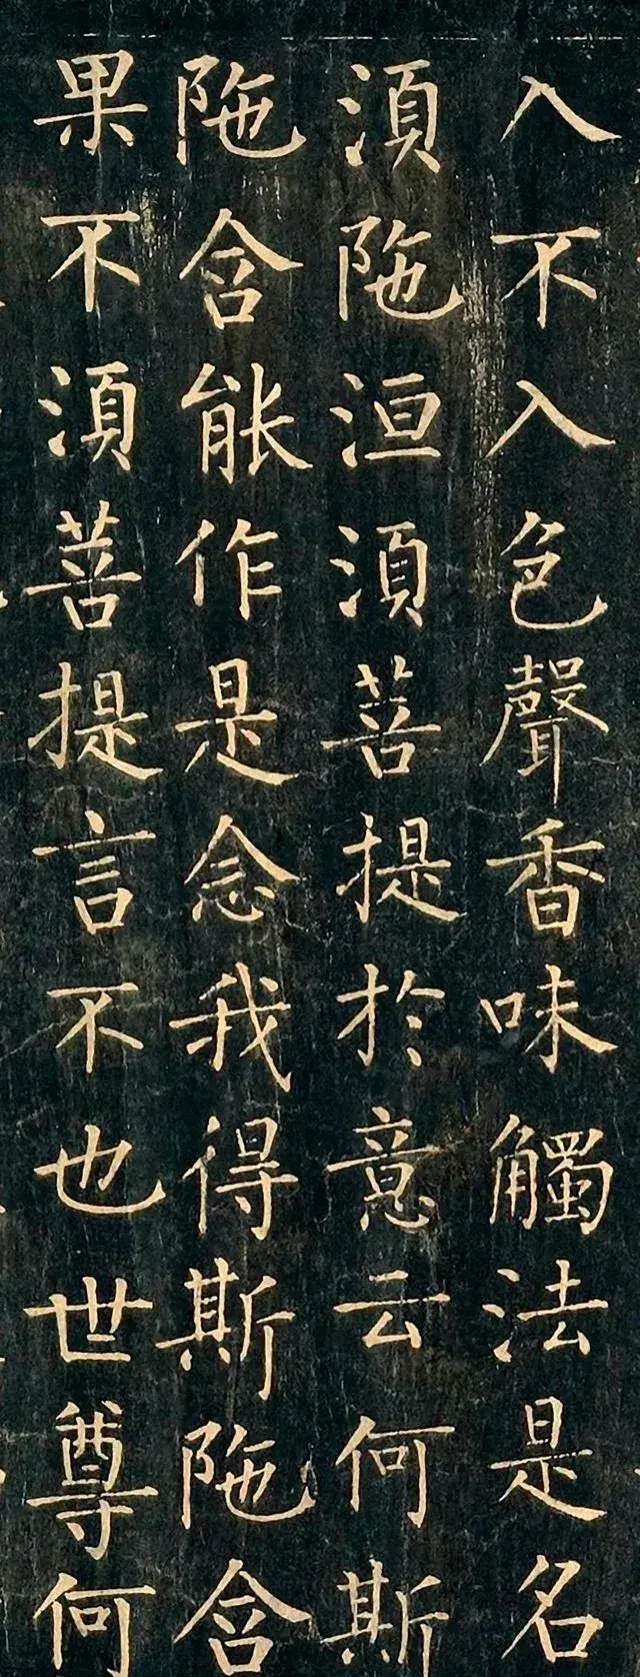 入不入色聲香味觸法是名
湏陁洹湏菩提於意云何斯
陁含能作是念我得斯陁含
果不湏菩提言不也世尊何